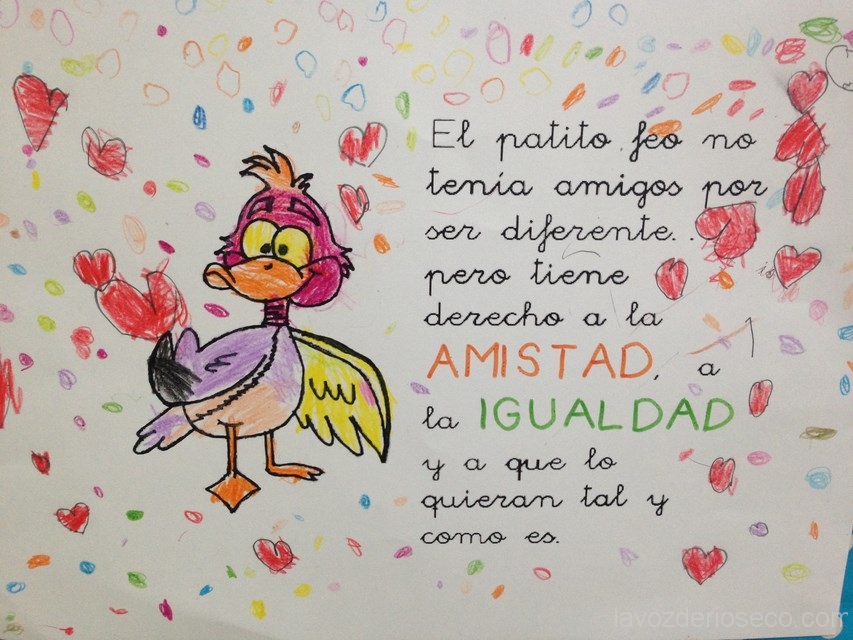 El patito feo no
tenía amigos por
ser diferente..
pero tiene
derecho a la
AMISTAD, a
la IGUALDAD
y a que lo
quieran tal y
como es.
lavozderioseco.com